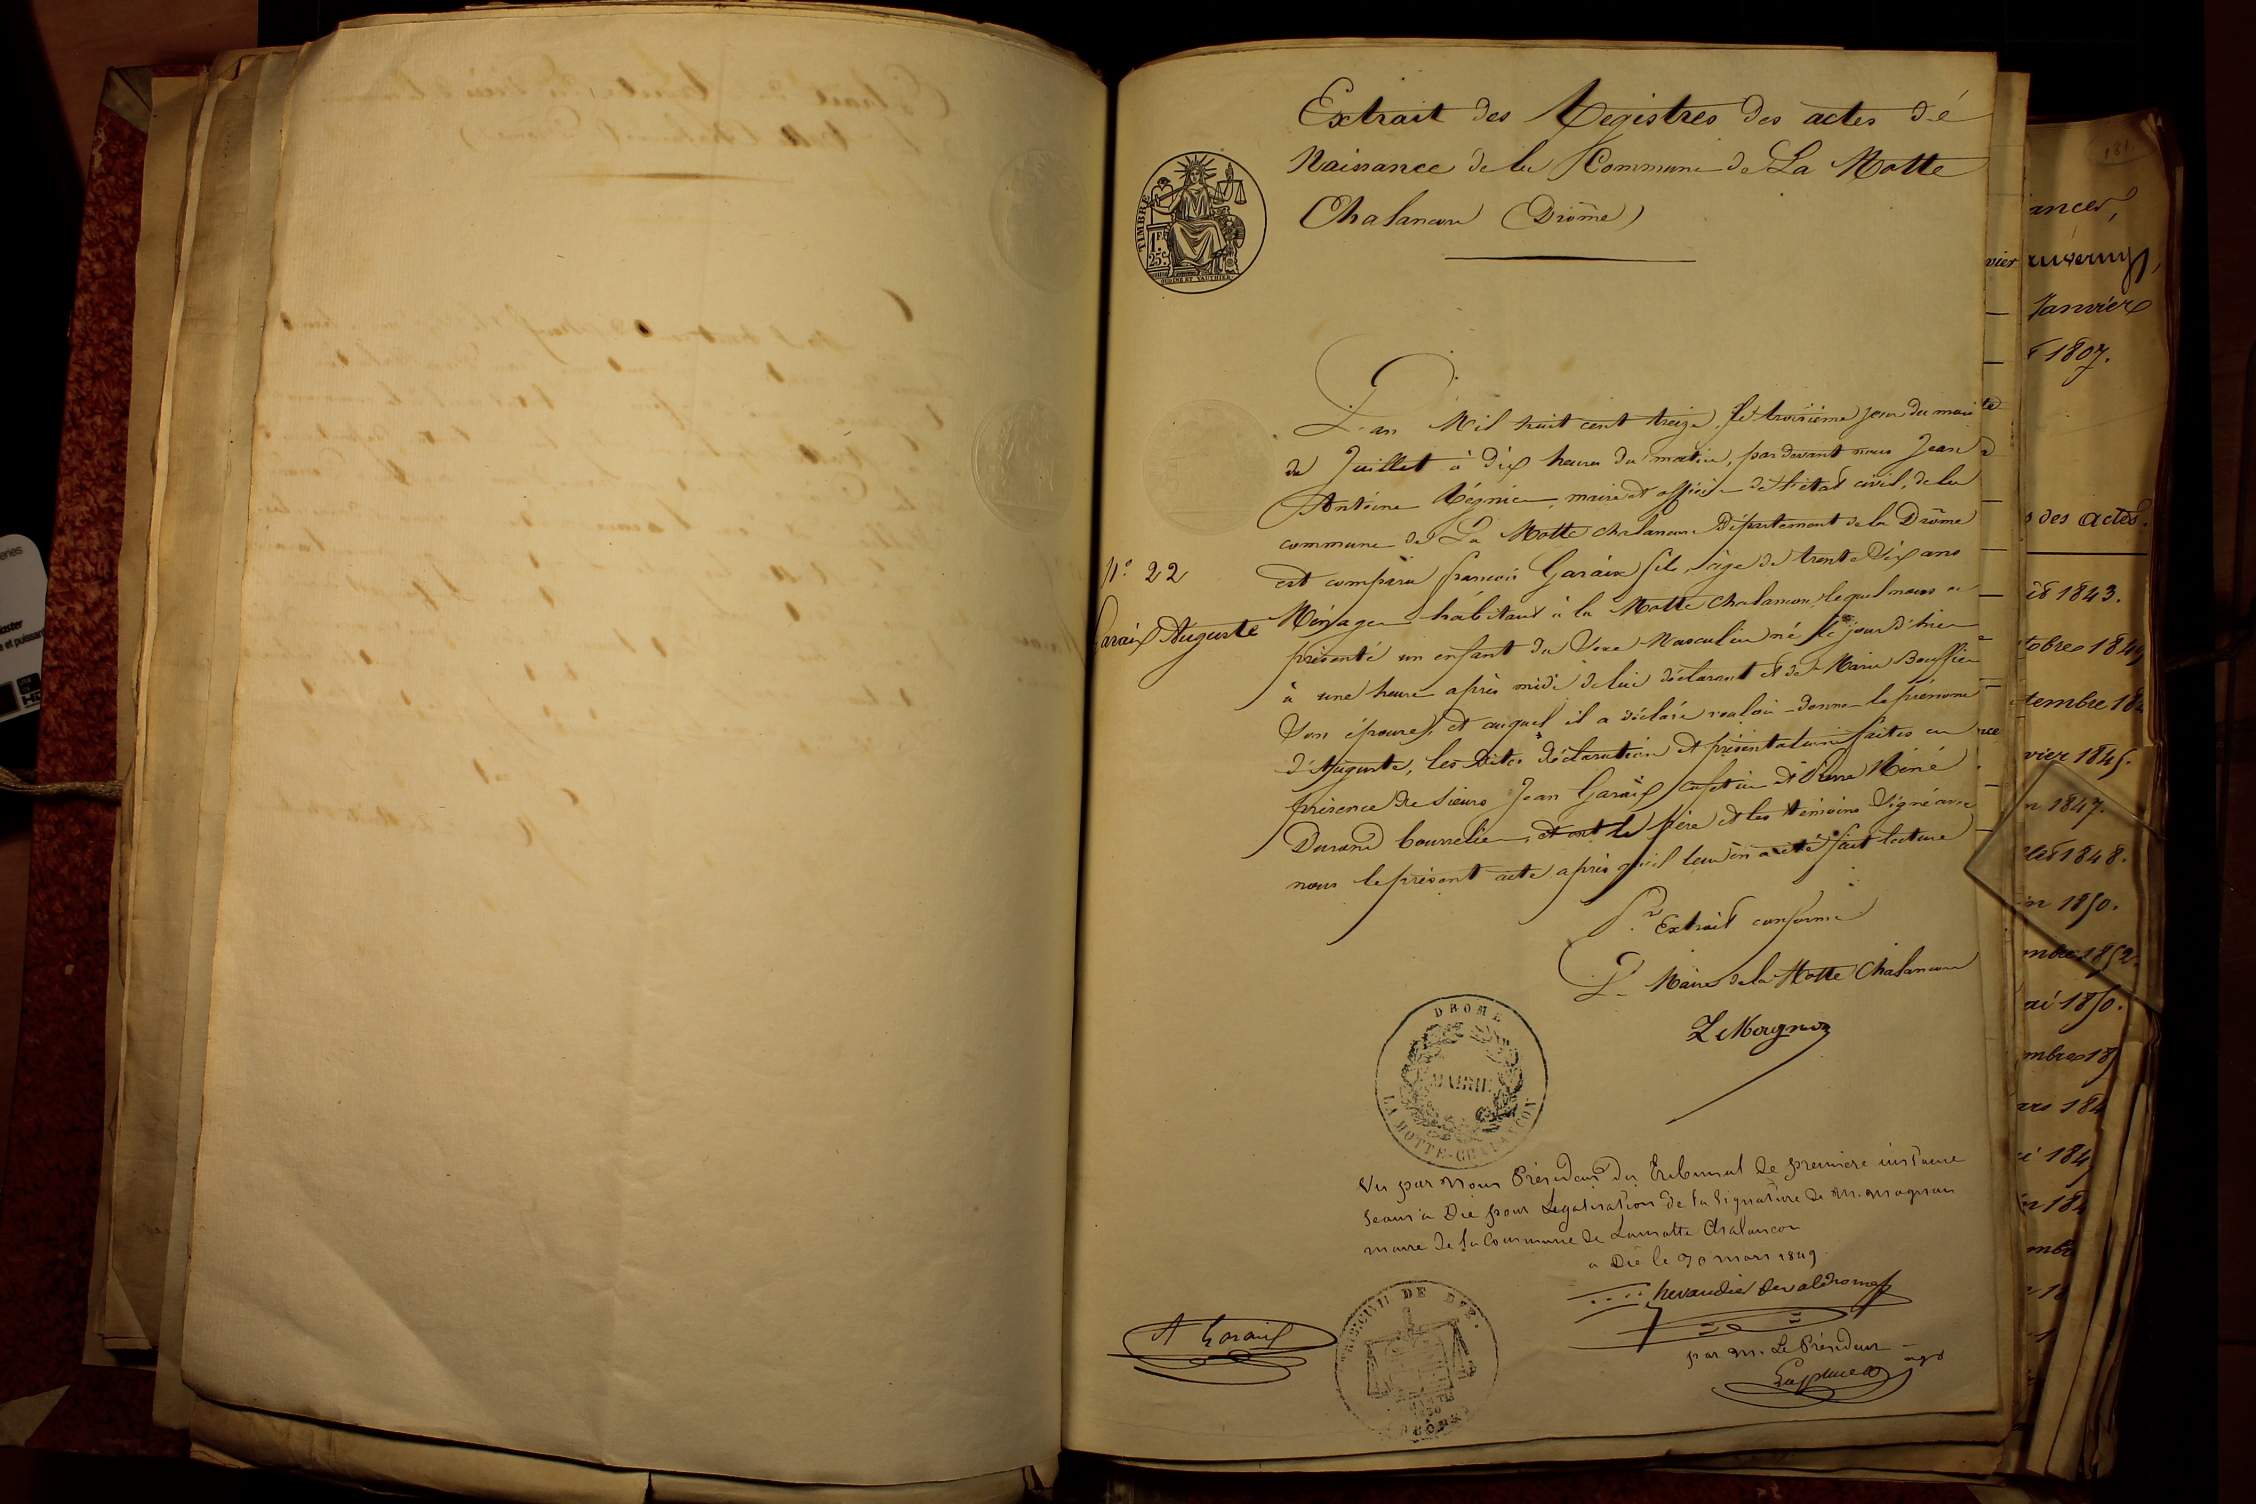 Extrait des Registres des actes dé
Naissance de la Commune de La Motte
Chalancon (Drôme)
TIMBRE
1 FR
25 C.
L'an Mil huit cent treize, le troisième jour du mois
de Juillet à dix heures du matin, par devant nous Jean
Antoine Régnier, maire et officier de l'état civil, de la
commune de La Motte chalancon Département de la Drôme
est comparu françois Garaix fils, âgé de trente Six ans
N.° 22
Garaix Auguste
Ménager habitant à la Motte chalancon, lequel nous a
présenté un enfant du Sexe Masculin né le jour d'hier
à une heure après midi de lui déclarant et de Marie Bouffier
Son épouse, et auquel il a déclaré vouloir donner le prénom
d'Auguste, les dites déclaration et présentation faites en
présence de Sieurs Jean Garaix et Pierre Réné
Durand bourrelier, et ont le père et les témoins Signé avec
nous le présent acte après qu'il leur en a été fait lecture
P.r Extrait conforme
Le Maire de la Motte Chalancon
DROME
MAIRIE
LA MOTTE-CHALANCON
Vu par Nous Président du Tribunal de première instance
Seant à Die pour Legalisation de la Signature de M. Magnan
maire de la Commune de Lamotte Chalancon
a Die le 30 mars 1849
Chevandier Devaldrome
par M. Le Président
A Garaix
TRIBUNAL DE DIE.
DROME
181.
Janvier
1807.
des actes.
1843.
1845.
1847.
1848.
1850.
1852.
1850.